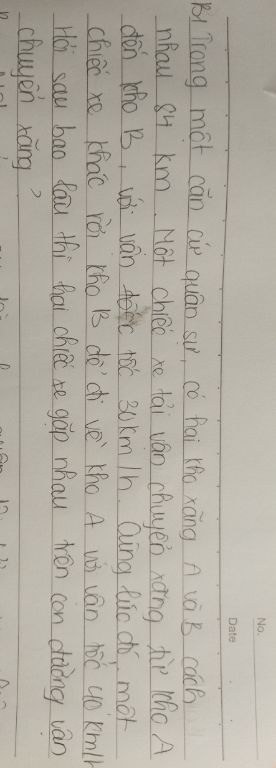 No.
Date
B1 Trong một căn cứ quân sự, có hai kho xăng A và B cách
nhau 84 km. Một chiếc xe tải vận chuyển xăng từ kho A
đến kho B, với vận tốc 30km/h. Cùng lúc đó, một
chiếc xe khác rời kho B để đi về kho A với vận tốc 40 km/h
Hỏi sau bao lâu thì hai chiếc xe gặp nhau trên con đường vận
chuyển xăng?